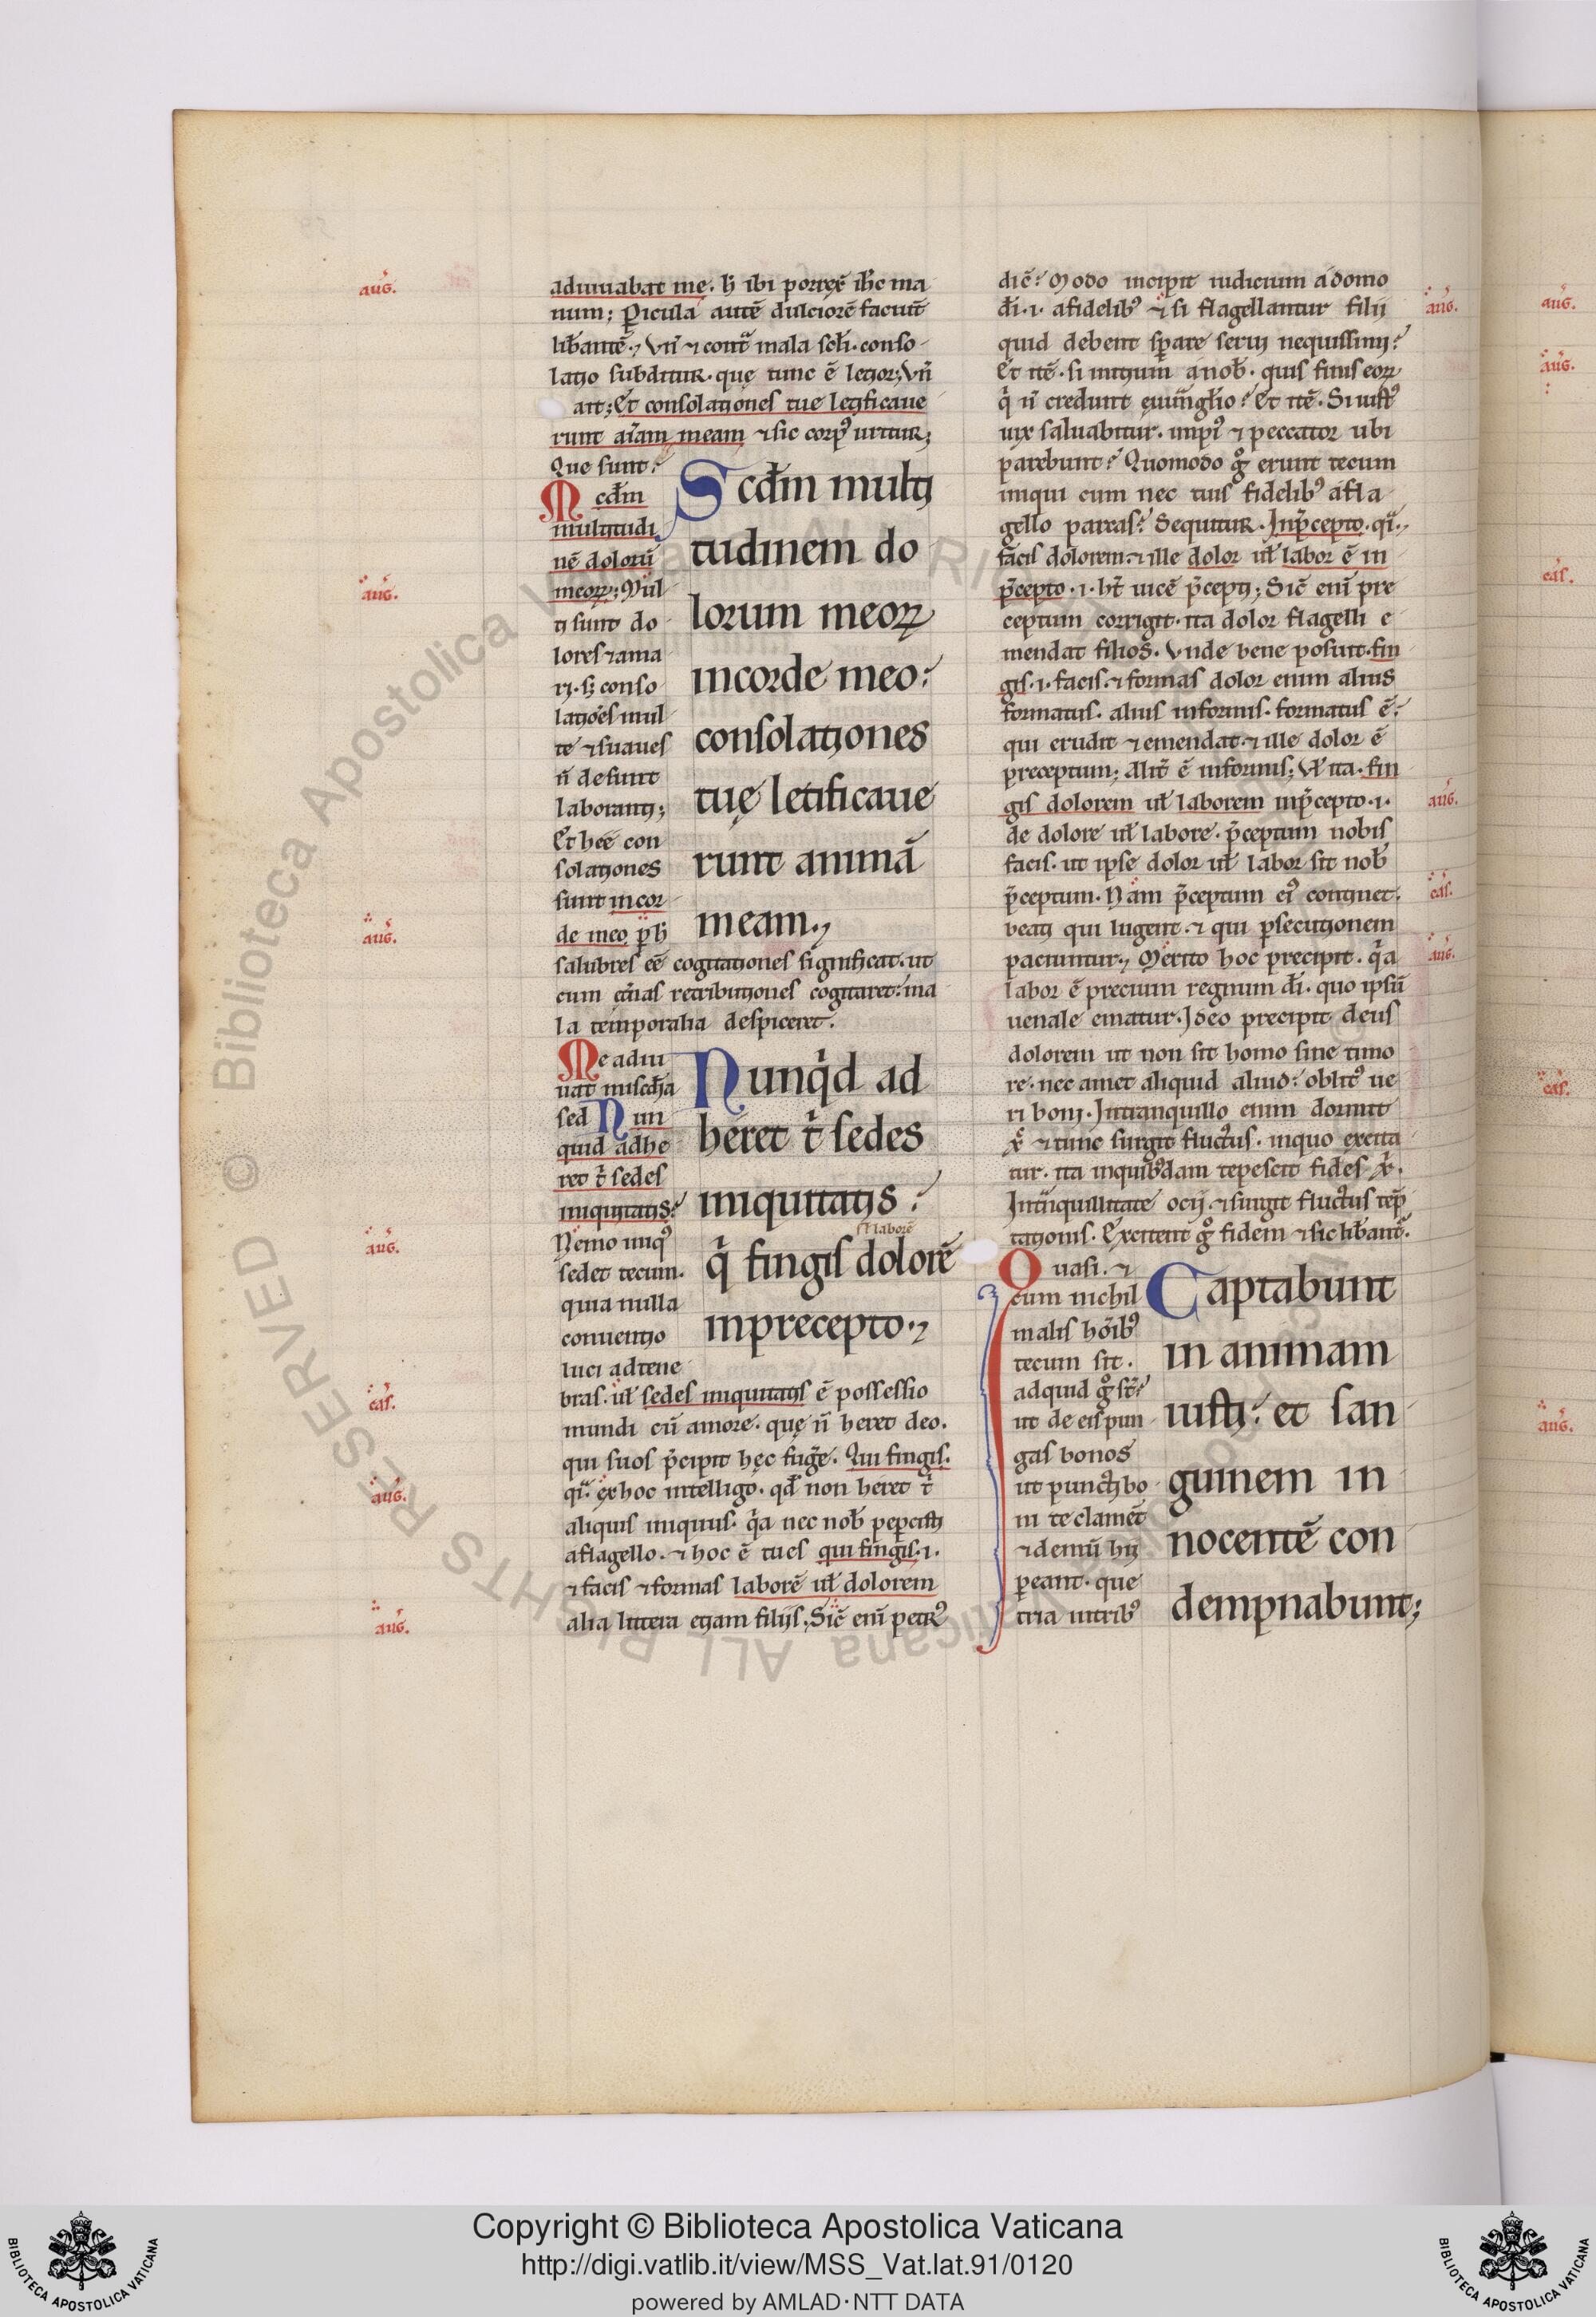 adiuuabat me. h̄ ibi porrexē ihc̄ ma
num; Picula autē dulciorē faciūt
lib̄antē. Vn̄ ⁊ cont̄ mala scl̄i. conso
latio subditur. que tunc ē letior; Vn̄
ait; Et consolationes tue letificaue
runt aīam meam ⁊ sic corp᾽ uritur;
Que sunt?
M cd̄m
multitudi
nē dolorū
meoꝝ; Mul
ti sunt do
lores ⁊ ama
ri. sꝫ conso
latiōes mul
te ⁊ suaues
n̄ desunt
laboranti;
Et hee con
solationes
sunt in cor
de meo
salubres eē cogitationes significat. ut
cum et̄nas retributiones cogitaret. ma
la temporalia despiceret.
Scd̄m multi
tudinem do
lorum meoꝝ
incorde meo?
consolationes
tuę letificaue
runt animā
meam.
Me adiu
uat
sed Nun
quid adhe
ret t̄ sedes
iniquitatis?
Nemo iniq᾽
sedet tecum.
quia nulla
conuentio
luci ad tene
bras. ul̄ sedes iniquitatis ē possessio
mundi cū amore. quę n̄ heret deo.
qui suos p̄cipit hęc fuḡe. Qui fingis.
qī. ex hoc intelligo. qd̄ non heret t̄
aliquis iniquus. q̄a nec nob̄ pepcisti
a flagello. ⁊ hoc ē tu es qui fingis .i.
⁊ facis ⁊ formas laborē ul̄ dolorem
alia littera etiam filiis. Sic̄ enī petr᾽
Nunq̄d ad
heret t̄ sedes
iniquitatis?
ꝉ laborē
q̄ fingis dolorē
inprecepto.
dic̄? Modo incipit iudicium a domo
d̄i .i. a fidelib᾽ ⁊ si flagellantur filii
quid debent spare serui nequissimi?
Et itē. si initium a nob̄. quis finis eoꝝ
q̄ n̄ credunt euuanglīo? Et itē. Si iust᾽
uix saluabitur. impi᾽ ⁊ peccator ubi
parebunt? Quomodo g̊ erunt tecum
iniqui cum nec tuis fidelib᾽ a fla
gello parcas? Sequitur. In p̄cepto. qī.
facis dolorem. ⁊ ille dolor ul̄ labor ē in
p̄cepto .i. ht̄ uicē p̄cepti; Sic̄ enī pre
ceptum corrigit. ita dolor flagelli e
mendat filios. Vnde bene posuit. fin
gis .i. facis. ⁊ formas dolor enim alius
formatus. alius informis. formatus ē.
qui erudit ⁊ emendat. ⁊ ille dolor ē
preceptum; Alit̄ ē informis; Vl̄ ita. fin
gis dolorem ul̄ laborem in p̄cepto .i.
de dolore ul̄ labore. p̄ceptum nobis
facis. ut ipse dolor ul̄ labor sit nob̄
p̄ceptum. Nam p̄ceptum ei᾽ continet.
beati qui lugent. ⁊ qui psecutionem
patiuntur. Merito hoc precipit. q̄a
labor ē precium regnum d̄i. quo ipsū
uenale ematur. Ideo precipit deus
dolorem ut non sit homo sine timo
re. nec amet aliquid aliud. oblit᾽ ue
ri boni. In tranquillo enim dormit
⁊ tunc surgit fluctus. in quo excita
tur. ita in quib᾽dam tepescit fides
In tn̄quillitate ocii. ⁊ surgit fluctus tep̄
tationis. Excitent g̊ fidem ⁊ sic lib̄ant᾽.
Quasi. ⁊
cum nichil
malis hōib᾽
tecum sit.
ad quid g̊ st̄?
ut de eis pun
gas bonos
ut puncti bo
ni te clamēt
⁊ demū hii
peant. que
tria uitrib᾽
Captabunt
in animam
iusti. et san
guinem in
nocentē con
dempnabunt;
aug.
aug.
aug.
aug.
cas.
aug.
aug.
aug.
aug.
cas.
aug.
aug.
aug.
cas.
cas.
aug.
© Biblioteca Apostolica Vaticana ALL RIGHTS RESERVED
Copyright © Biblioteca Apostolica Vaticana
http://digi.vatlib.it/view/MSS_Vat.lat.91/0120
powered by AMLAD·NTT DATA
BIBLIOTECA APOSTOLICA VATICANA
BIBLIOTECA APOSTOLICA VATICANA